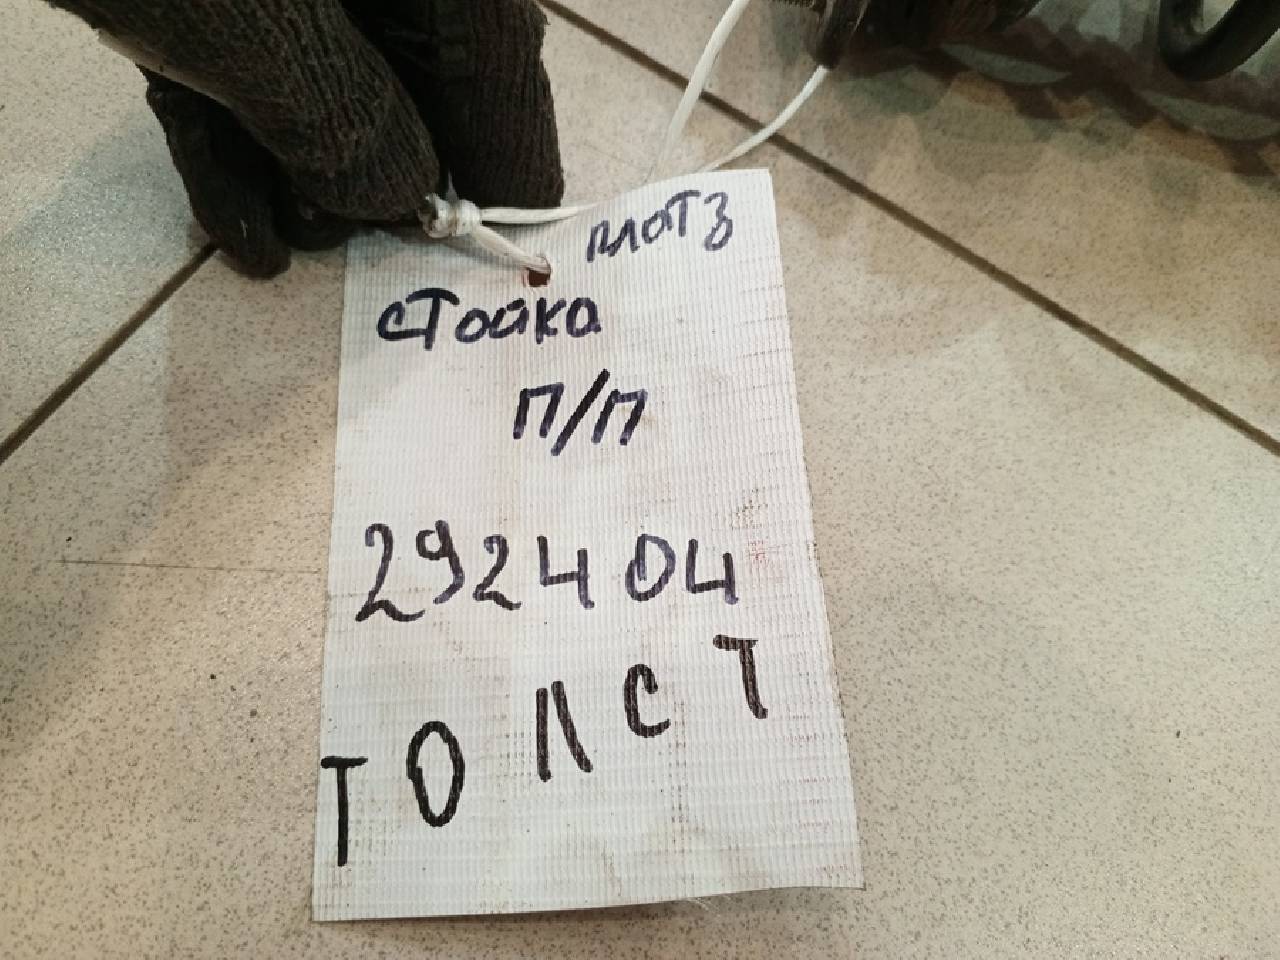 плотз
стойка
п/п
292404
ТОЛСТ